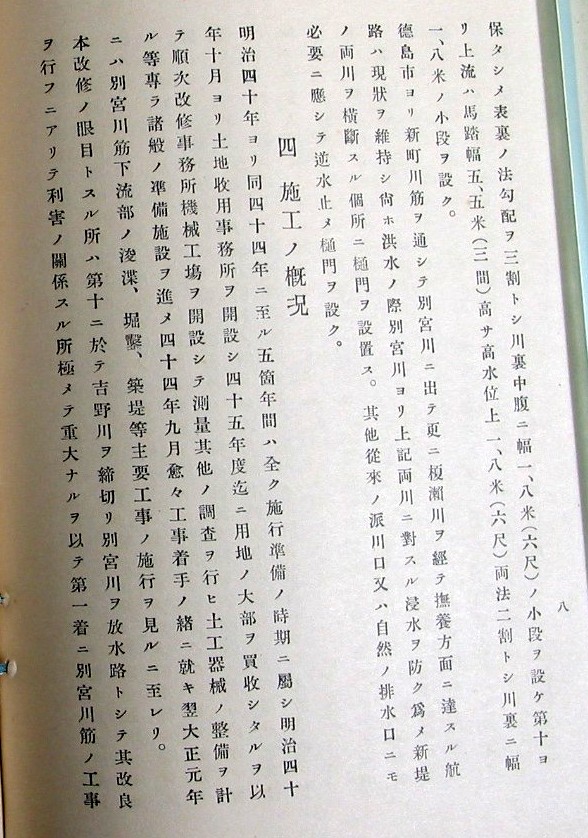 八
保タシメ表裏ノ法勾配ヲ三割トシ川裏中腹ニ幅一、八米(六尺)ノ小段ヲ設ケ第十ヨ
リ上流ハ馬踏幅五、五米(三間)高サ高水位上一、八米(六尺)両法二割トシ川裏ニ幅
一、八米ノ小段ヲ設ク。
德島市ヨリ新町川筋ヲ通シテ別宮川ニ出テ更ニ榎瀬川ヲ經テ撫養方面ニ達スル航
路ハ現狀ヲ維持シ尙ホ洪水ノ際別宮川ヨリ上記両川ニ對スル浸水ヲ防ク爲メ新堤
ノ両川ヲ橫斷スル個所ニ樋門ヲ設置ス。其他從來ノ派川口又ハ自然ノ排水口ニモ
必要ニ應シテ逆水止メ樋門ヲ設ク。
四 施工ノ槪況
明治四十年ヨリ同四十四年ニ至ル五箇年間ハ全ク施行準備ノ時期ニ屬シ明治四十
年十月ヨリ土地收用事務所ヲ開設シ四十五年度迄ニ用地ノ大部ヲ買收シタルヲ以
テ順次改修事務所機械工場ヲ開設シテ測量其他ノ調査ヲ行ヒ土工器械ノ整備ヲ計
ル等專ラ諸般ノ準備施設ヲ進メ四十四年九月愈々工事着手ノ緒ニ就キ翌大正元年
ニハ別宮川筋下流部ノ浚渫、堀鑿、築堤等主要工事ノ施行ヲ見ルニ至レリ。
本改修ノ眼目トスル所ハ第十ニ於テ吉野川ヲ締切リ別宮川ヲ放水路トシテ其改良
ヲ行フニアリテ利害ノ關係スル所極メテ重大ナルヲ以テ第一着ニ別宮川筋ノ工事